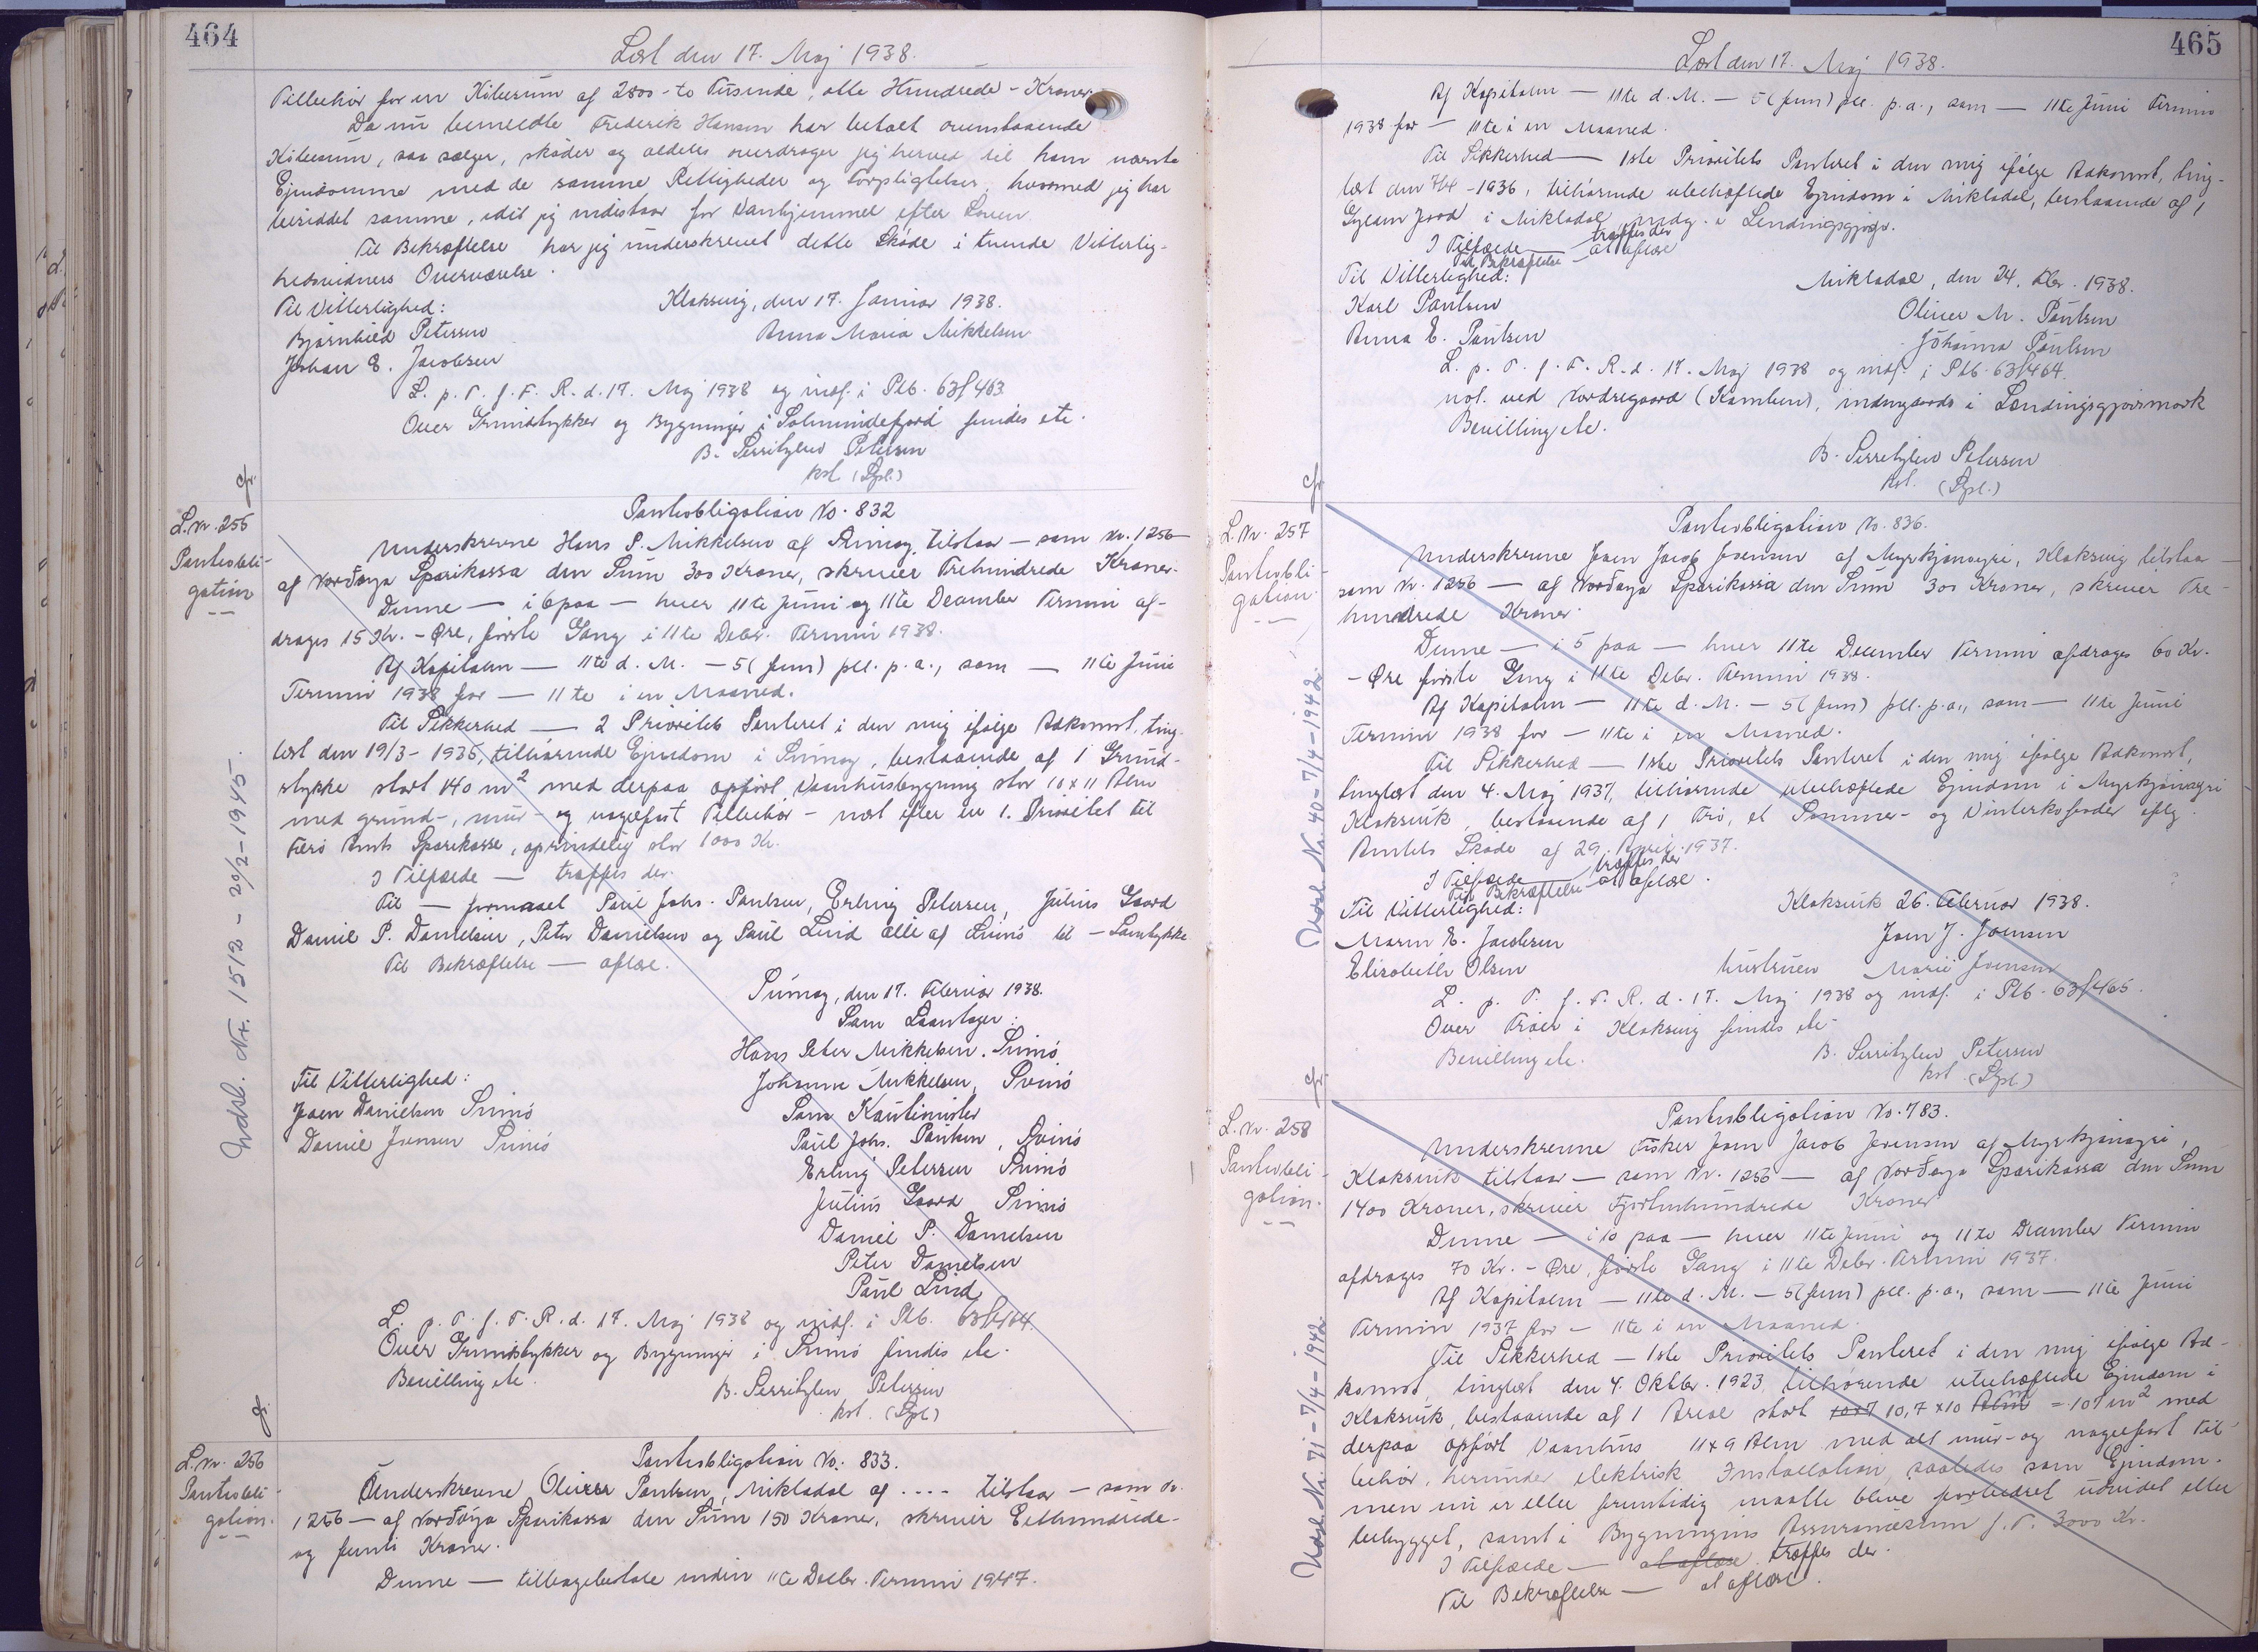 464
Læst den 17. Maj 1938.
Tilbehør for en Købesum af 2800 - to Tusinde, otte Hundrede - Kroner.
Da nu bemeldte Frederik Hansen har betalt ovenstaaende
Købesum, saa sælger, skøder og aldeles overdrager jeg herved til ham nævnte
Ejendomme med de samme Rettigheder og Forpligtelser, hvormed jeg har
besiddet samme, idet jeg indestaar for Vanhjemmel efter Loven.
Til Bekræftelse har jeg underskrevet dette Skøde i tvende Vitterlig-
hedsvidners Overværelse.
Til Vitterlighed:
Klaksvig, den 17. Januar 1938.
Bjørnhild Petersen
Anna Maria Mikkelsen
Johan E. Jacobsen
L. p. T. f. F. R. d. 17. Maj 1938 og indf. i Ptb. 63f 463
Over Grundstykker og Bygninger i Solmundefjord findes ete.
B. Serritzlew Petersen
kst. (Sgl.)
cfr.
L. nr. 255
Pantobli-
gation
Indsl. Nr. 1512 - 20/2-1945.
Pantobligation No. 832
Underskrevne Hans P. Mikkelsen af Svinøy, tilstaar — som Nr. 1256 —
af Norðoya Sparikassa den Sum 300 Kroner, skriver Trehundrede Kroner.
Denne — i 6 paa — hver 11te Juni og 11te December Termin af-
drages 15 Kr. - Øre, første Gang i 11te Decbr. Termin 1938.
Af Kapitalen — 11te d. M. — 5 (fem) pCt. p.a., som — 11te Juni
Termin 1938 for — 11te i en Maaned.
Til Sikkerhed — 2 Prioritets Panteret i den mig ifølge Adkomst, ting-
læst den 19/3 - 1935, tilhørende Ejendom i Svinøy, bestaaende af 1 Grund-
stykke stort 140 m² med derpaa opført Vaanhusbygning stor 10 x 11 Alen
med grund-, mur- og nagelfast Tilbehør — næst efter en 1. Prioritet til
Færø Amts Sparekasse, oprindelig stor 1000 Kr.
I Tilfælde — træffes der.
Til — formaael Paul Johs. Poulsen, Erling Petersen, Julius Gaard
Daniel P. Danielsen, Peter Danielsen og Paul Lind alle af Svinø til — Samtykke
Til Bekræftelse — aflæse.
Svinøy, den 17. Februar 1938.
Som Laantager:
Hans Peter Mikkelsen. Svinø
Til Vitterlighed:
Johanne Mikkelsen, Svinø
Joen Danielsen Svinø
Som Kautionister
Daniel Joensen Svinø
Paul Johs. Poulsen, Svinø
Erling Petersen Svinø
Julius Gaard Svinø
Daniel P. Danielsen
Peter Danielsen
Paul Lind
L. p. T. f. F. R. d. 17. Maj 1938 og indf. i Ptb. 63f464.
Over Grundstykker og Bygninger i Svinø findes ete.
Bevilling ete.
B. Serritzlew Petersen
kst. (Sgl.)
cfr.
L. nr. 256
Pantobli-
gation.
Pantobligation No. 833.
Underskrevne Oliver Poulsen, Mikladal af .... tilstaar — som Nr.
1256 — af Norðoya Sparikassa den Sum 150 Kroner, skriver Eethundrede-
og femti Kroner.
Denne — tilbagebetale inden 11te Decbr. Termin 1947.
465
Læst den 17. Maj 1938.
Af Kapitalen — 11te d. M. — 5 (fem) pCt. p.a., som — 11te Juni Termin
1938 for — 11te i en Maaned.
Til Sikkerhed — 1ste Prioritets Panteret i den mig ifølge Adkomst, ting-
læst den 7/4 - 1936, tilhørende ubehæftede Ejendom i Mikladal, bestaaende af 1
Gylden Jord i Mikladal indg. i Lendingsgjogv.
I Tilfælde — træffes der
Til Bekræftelse — at aflæse
Til Vitterlighed:
Mikladal, den 24. Febr. 1938.
Karl Poulsen
Oliver M. Poulsen
Anna E. Poulsen
Johanna Poulsen
L. p. T. f. F. R. d. 17. Maj 1938 og indf. i Ptb. 63f464.
vol. ved Nordregaard (Kamben), indengaards i Lendingsgjovsmark
Bevilling ete.
B. Serritzlew Petersen
kst. (Sgl.)
cfr.
L. Nr. 257
Pantobli-
gation
Udsl. Nr. 40 - 7/4-1942
Pantobligation No. 836.
Underskrevne Joen Jacob Joensen af Myrkjønoyri, Klaksvig tilstaar —
som Nr. 1256 — af Norðoya Sparikassa den Sum 300 Kroner, skriver Tre
hundrede Kroner.
Denne — i 5 paa — hver 11te December Termin afdrages 60 Kr.
- Øre første Gang i 11te Decbr. Termin 1938.
Af Kapitalen — 11te d. M. — 5 (fem) pCt. p.a., som — 11te Juni
Termin 1938 for — 11te i en Maaned.
Til Sikkerhed — 1ste Prioritets Panteret i den mig ifølge Adkomst,
tinglæst den 4. Maj 1937, tilhørende ubehæftede Ejendom i Myrkjønoyri
Klaksvik, bestaaende af 1 Trø, et Sommer- og Vinterkofoder iflg.
Amtets Skøde af 29. April 1937.
I Tilfælde — træffes der
Til Bekræftelse — at aflæse.
Til Vitterlighed:
Klaksvik 26. Februar 1938.
Maren E. Jacobsen
Joen J. Joensen
Elisabeth Olsen
hustruen Marie Joensen
L. p. T. f. F. R. d. 17. Maj 1938 og indf. i Ptb. 63f465.
Over Trøer i Klaksvig findes ete.
Bevilling ete.
B. Serritzlew Petersen
kst. (Sgl.)
cfr.
L. nr. 258
Pantobli-
gation.
Udsl. Nr. 71 - 7/4-1942
Pantobligation No. 783.
Underskrevne Fisker Joen Jacob Joensen af Myrkjønoyri,
Klaksvik tilstaar — som Nr. 1256 — af Norðoya Sparikassa den Sum
1400 Kroner, skriver Fjortenhundrede Kroner
Denne — i 10 paa — hver 11te Juni og 11te December Termin
afdrages 70 Kr. - Øre, første Gang i 11te Decbr. Termin 1937.
Af Kapitalen — 11te d. M. — 5 (fem) pCt. p.a., som — 11te Juni
Termin 1937 for — 11te i en Maaned.
Til Sikkerhed — 1ste Prioritets Panteret i den mig ifølge Ad-
komst, tinglæst den 4. Oktbr. 1923, tilhørende ubehæftede Ejendom i
Klaksvik, bestaaende af 1 Areal stort 10x7 10,7 x 10 Alen = 107 m² med
derpaa opført Vaanhus 11 x 9 Alen med alt mur- og nagelfast Til-
behør, herunder elektrisk Installation, saaledes som Ejendom-
men nu er eller fremtidig maatte blive forbedret udvidet eller
bebygget, samt i Bygningens Assurancesum f. T. 3000 Kr.
I Tilfælde — at aflæse træffes der.
Til Bekræftelse — at aflæse.